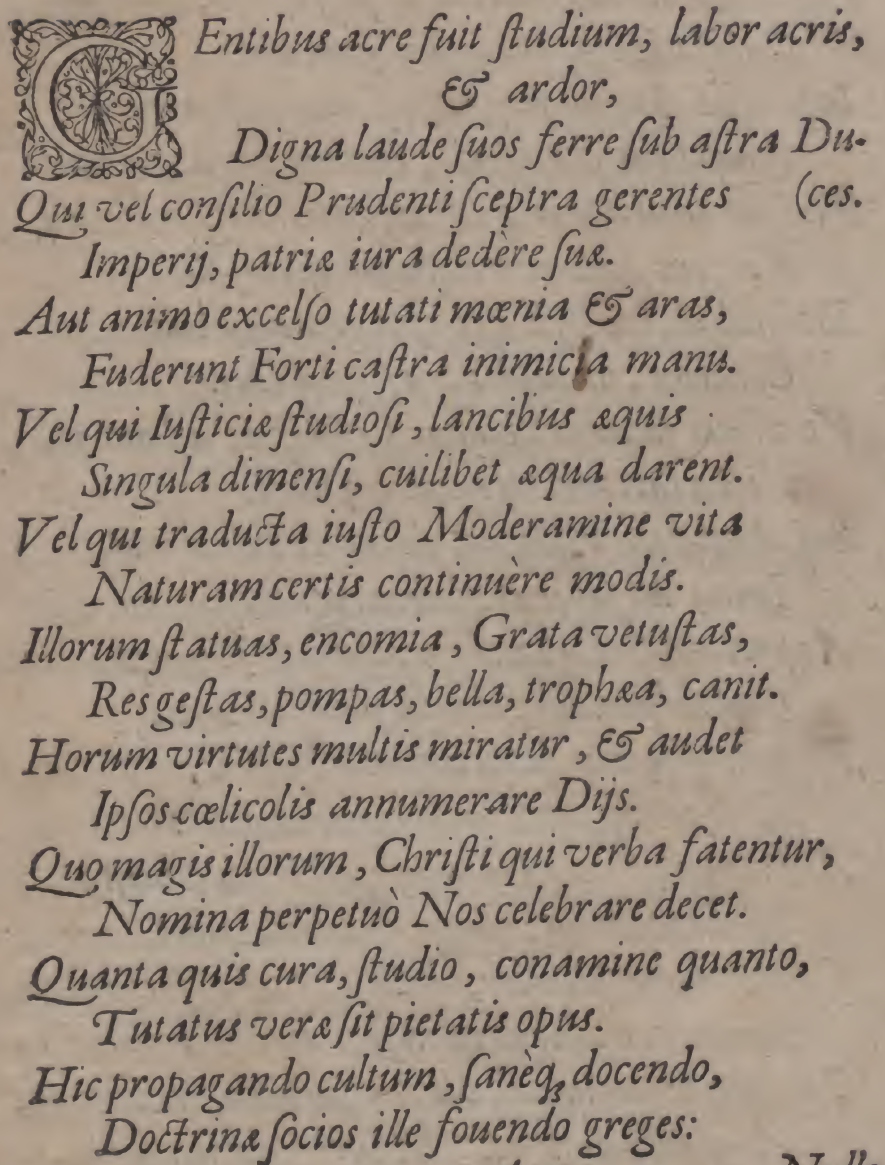 GEntibus acre fuit ſtudium, labor acris,
& ardor,
Digna laude ſuos ferre ſub aſtra Du-
Qui vel conſilio Prudenti ſceptra gerentes (ces.
Imperij, patriæ iura dedère ſuæ.
Aut animo excelſo tutati mœnia & aras,
Fuderunt Forti caſtra inimicia manu.
Vel qui Iuſticiæ ſtudioſi, lancibus æquis
Singula dimenſi, cuilibet æqua darent.
Vel qui traducta iuſto Moderamine vita
Naturam certis continuère modis.
Illorum ſtatuas, encomia, Grata vetuſtas,
Res geſtas, pompas, bella, trophæa, canit.
Horum virtutes multis miratur, & audet
Ipſos cœlicolis annumerare Dijs.
Quo magis illorum, Chriſti qui verba fatentur,
Nomina perpetuò Nos celebrare decet.
Quanta quis cura, ſtudio, conamine quanto,
Tutatus veræ ſit pietatis opus.
Hic propagando cultum, ſanèq́; docendo,
Doctrinæ ſocios ille fouendo greges: